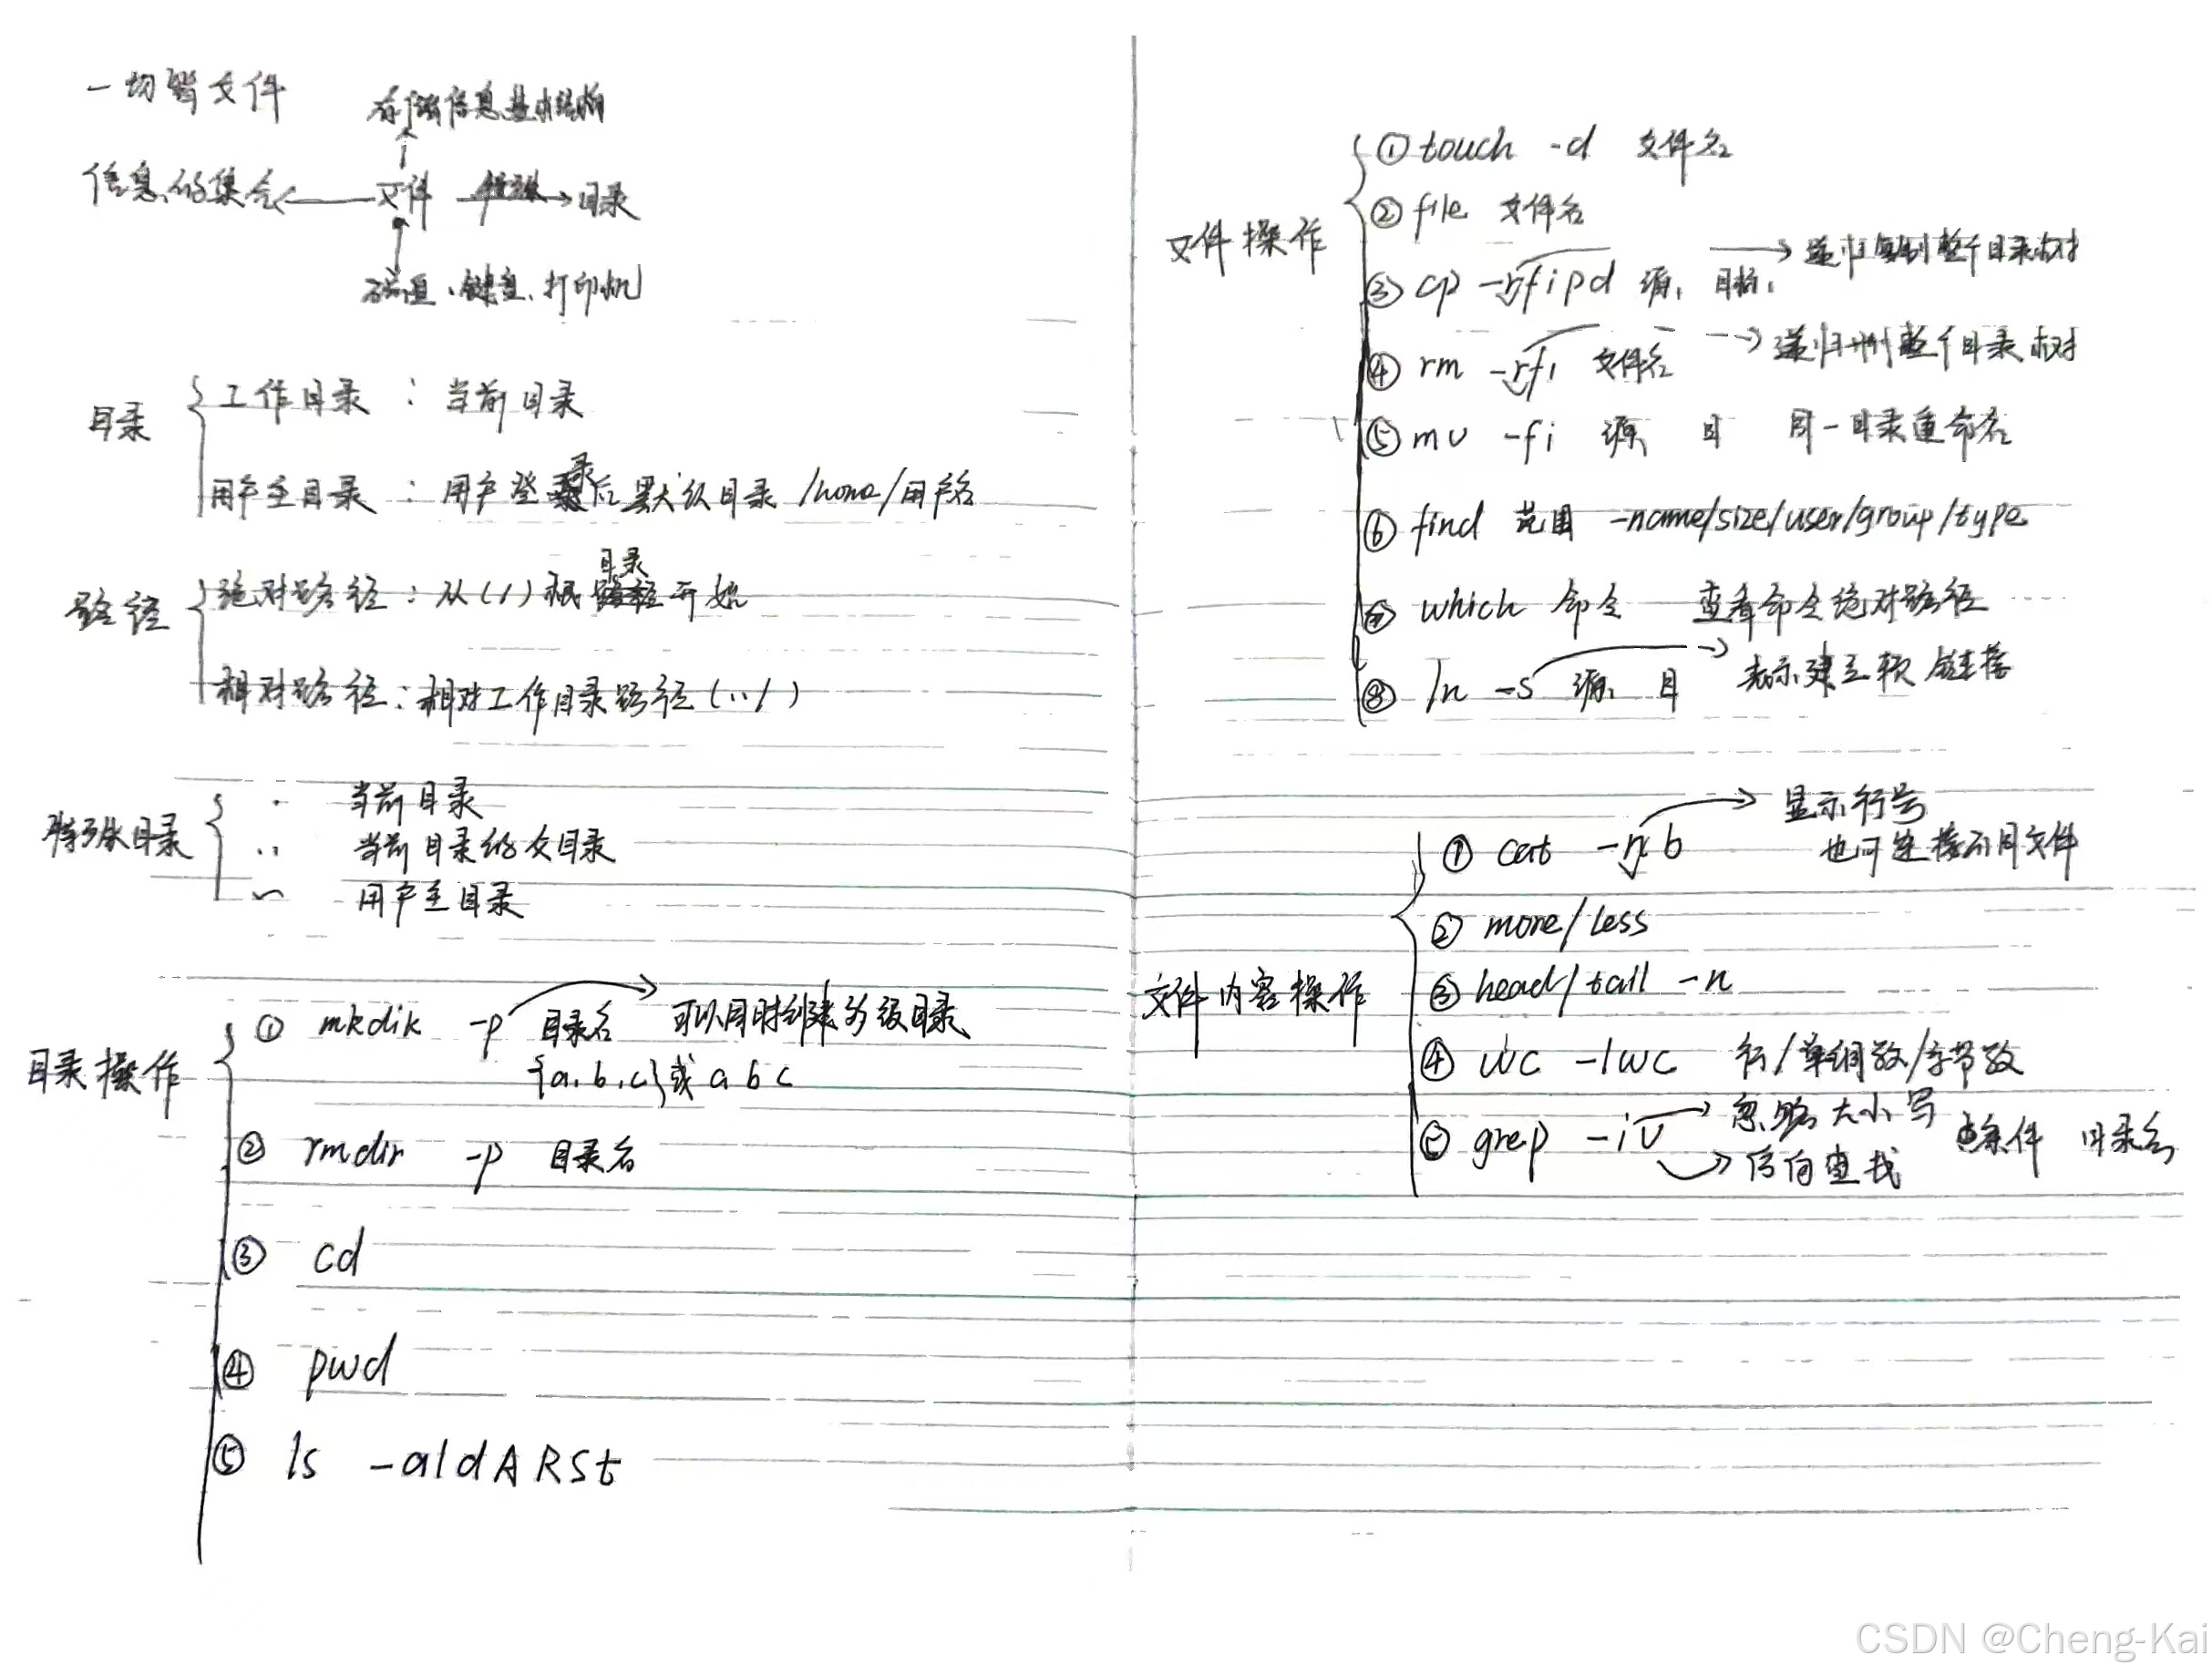 一切皆文件
存储信息基本结构
信息的集合 文件 目录
磁盘、键盘、打印机
目录
工作目录 : 当前目录
用户主目录 : 用户登录后默认目录 /home/用户名
路径
绝对路径 : 从(/)根目录开始
相对路径 : 相对工作目录路径(../)
特殊目录
. 当前目录
.. 当前目录的父目录
~ 用户主目录
目录操作
① mkdik -p 目录名 可以同时创建多级目录
{a,b,c}或 a b c
② rmdir -p 目录名
③ cd
④ pwd
⑤ ls -aldARSt
文件操作
① touch -d 文件名
② file 文件名
③ cp -rfipd 源 目标 递归复制整个目录树
④ rm -rfi 文件名 递归删整个目录树
⑤ mv -fi 源 目 同一目录重命名
⑥ find 范围 -name/size/user/group/type
⑦ which 命令 查看命令绝对路径
⑧ ln -s 源 目 表示建立软链接
文件内容操作
① cat -n b 显示行号
也可连接不同文件
② more/less
③ head/tail -n
④ wc -lwc 行/单词数/字节数
⑤ grep -iv 忽略大小写 条件 目录名
反向查找
CSDN @Cheng-Kai